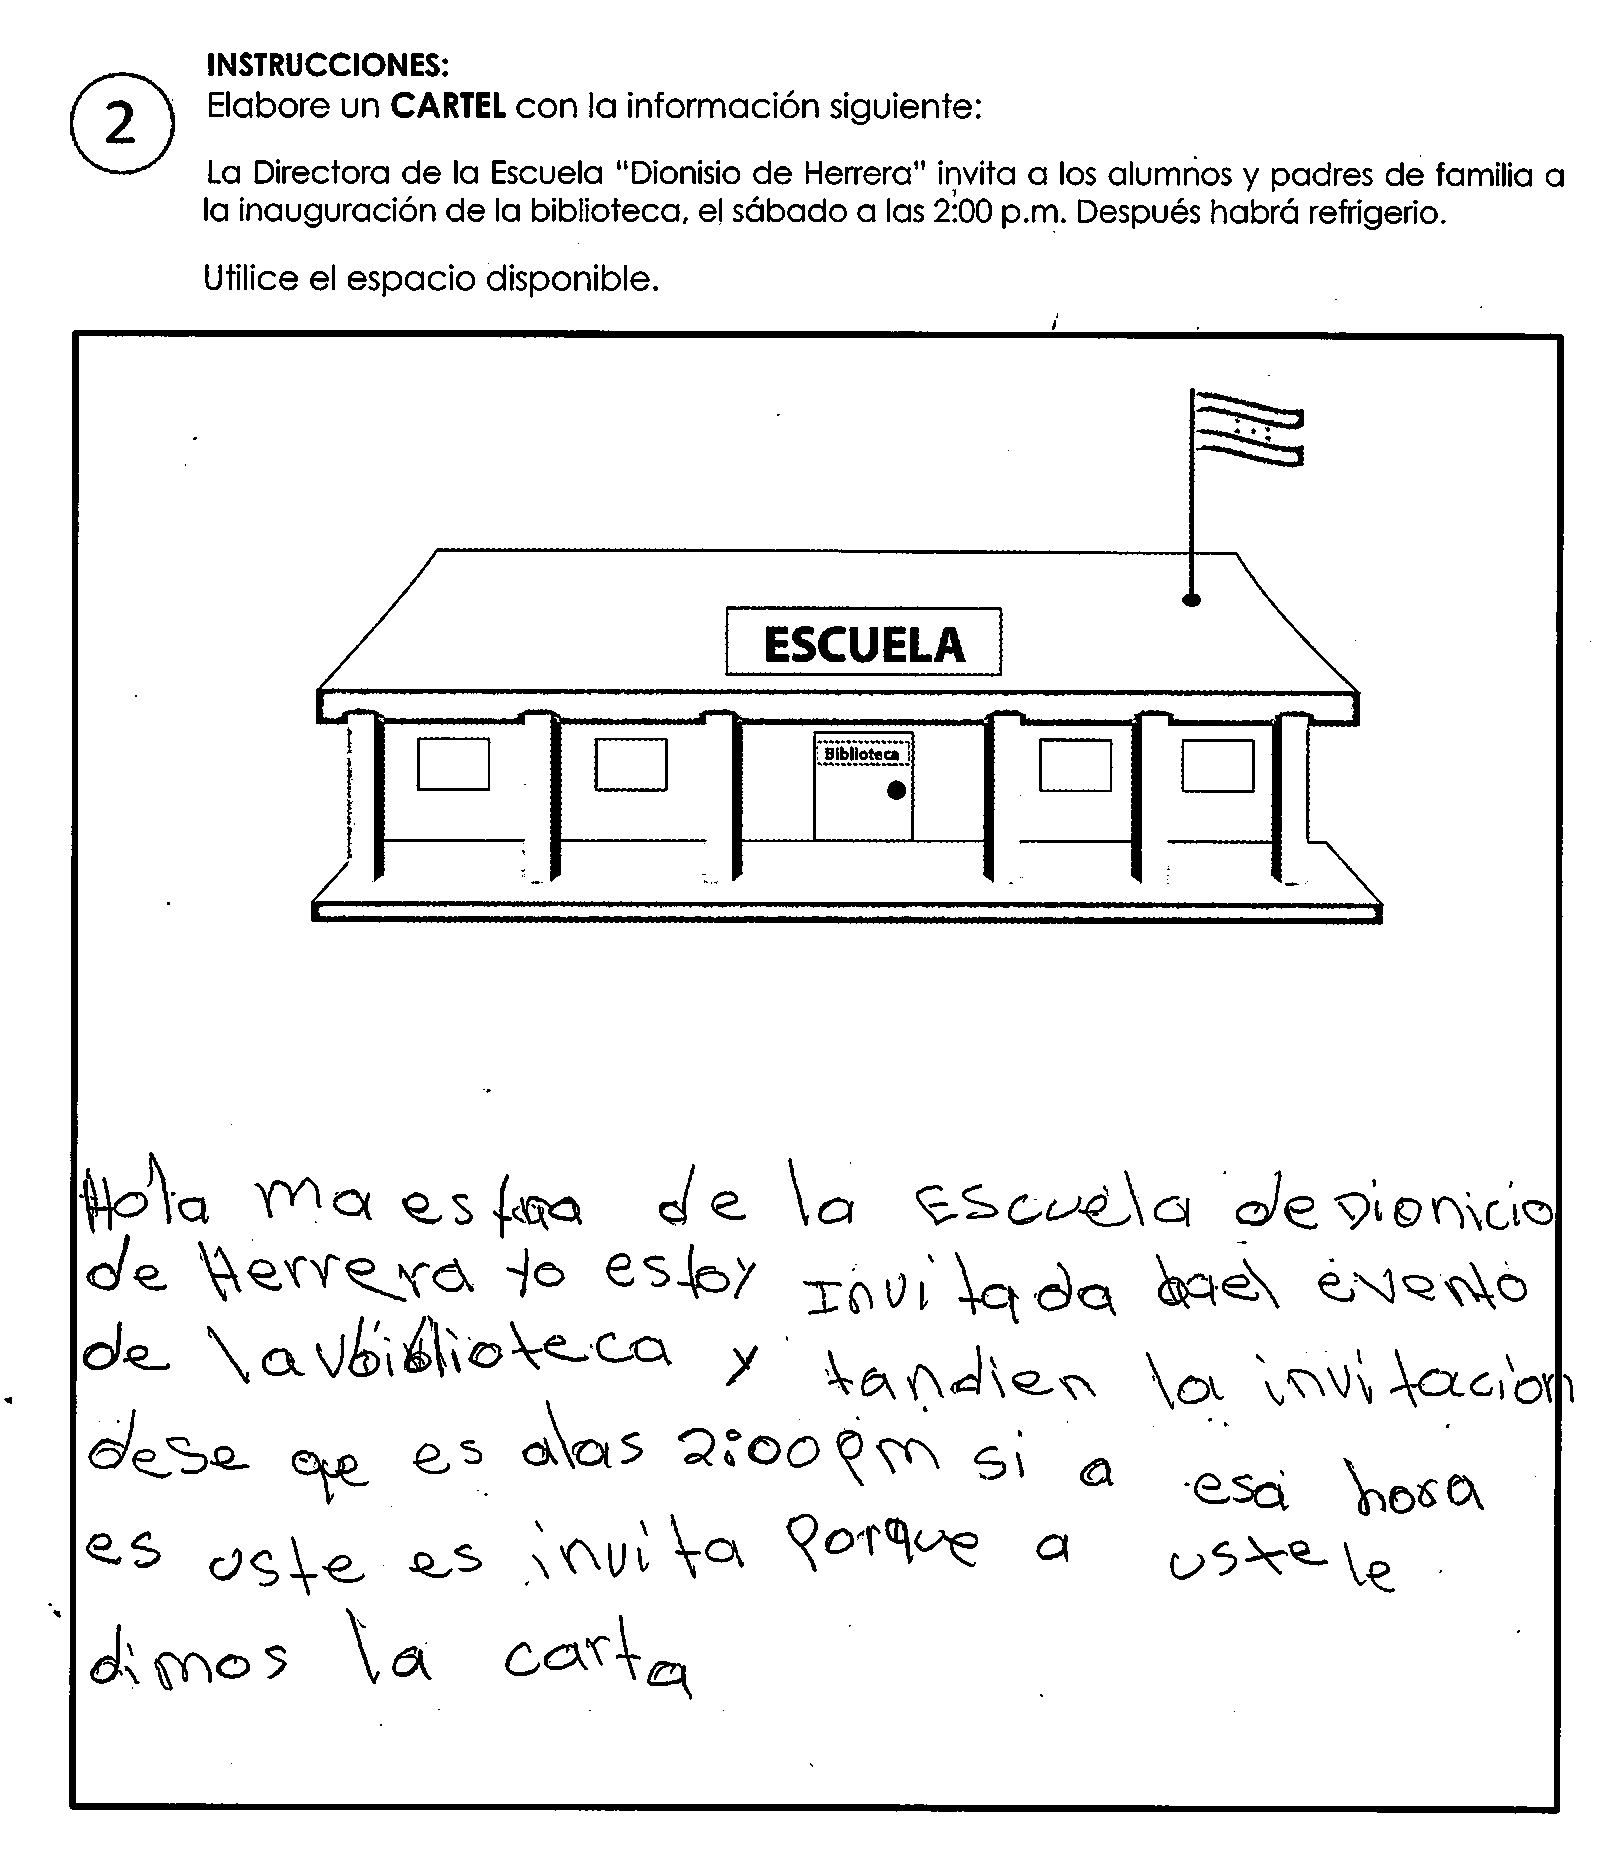 INSTRUCCIONES:
2
Elabore un CARTEL con la información siguiente:
La Directora de la Escuela "Dionisio de Herrera" invita a los alumnos y padres de familia a
la inauguración de la biblioteca, el sábado a las 2:00 p.m. Después habrá refrigerio.
Utilice el espacio disponible.
ESCUELA
Biblioteca
Hola maestra de la Escuela de Dionicio
de Herrera yo estoy Invitada el evento
de la biblioteca y tandien la invitación
dese que es alas 2:00 pm si a esa hora
es uste es invita Porque a uste le
dimos la carta